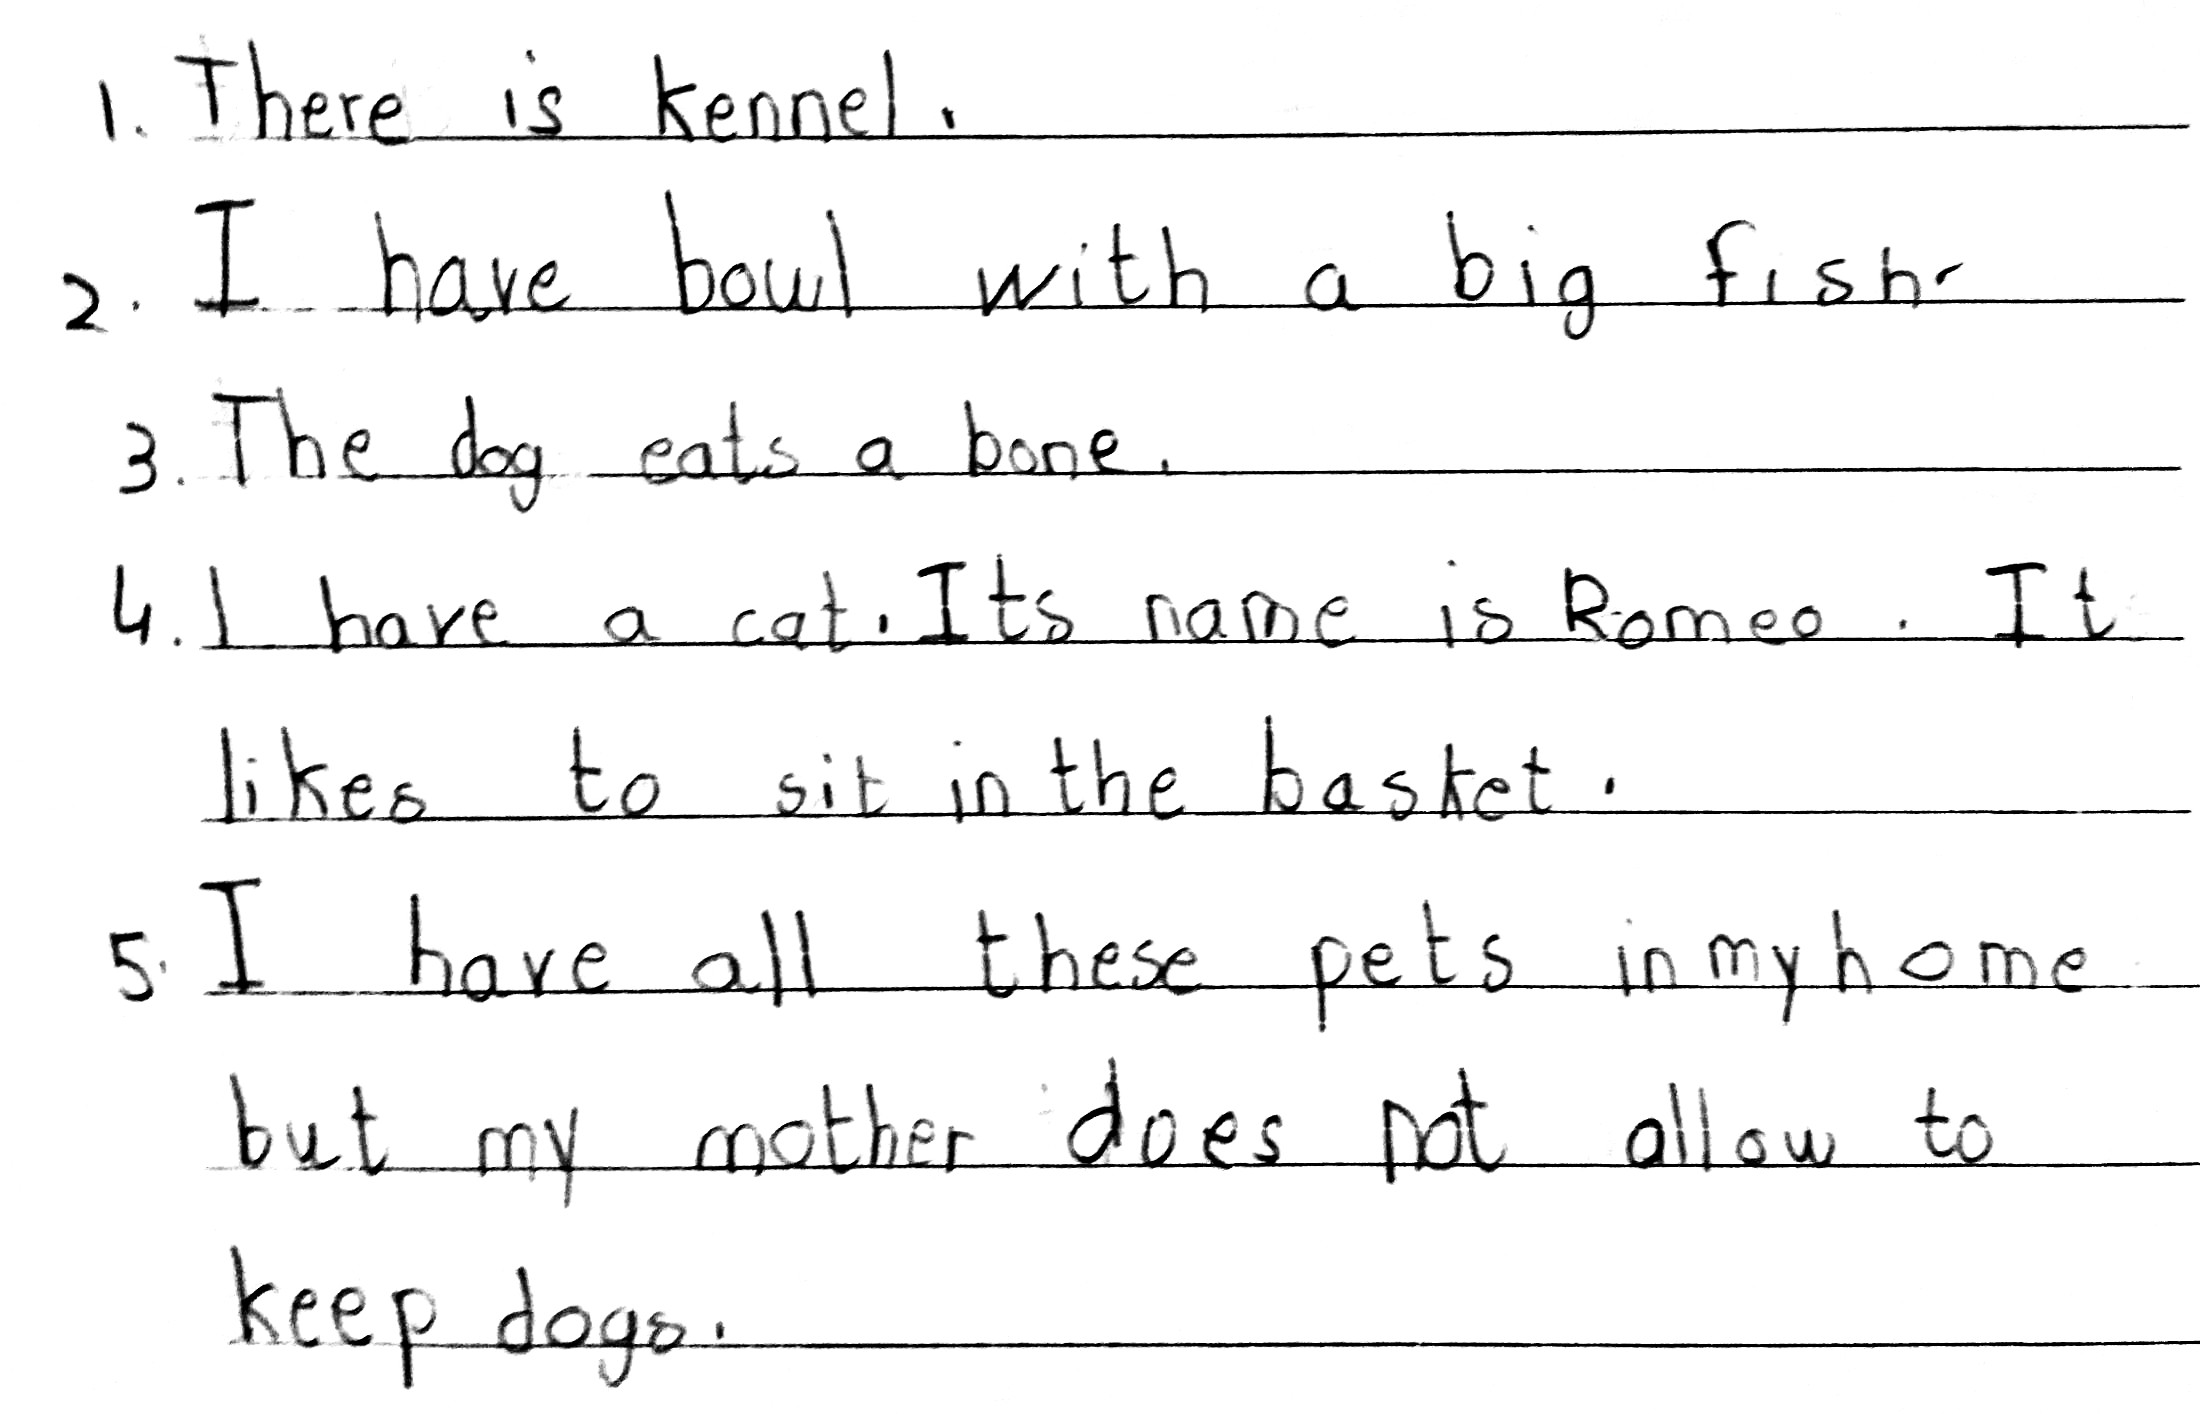 1. There is kennel.
2. I have bowl with a big fish.
3. The dog eats a bone.
4. I have a cat. Its name is Romeo. It
likes to sit in the basket.
5. I have all these pets in my home
but my mother does not allow to
keep dogs.